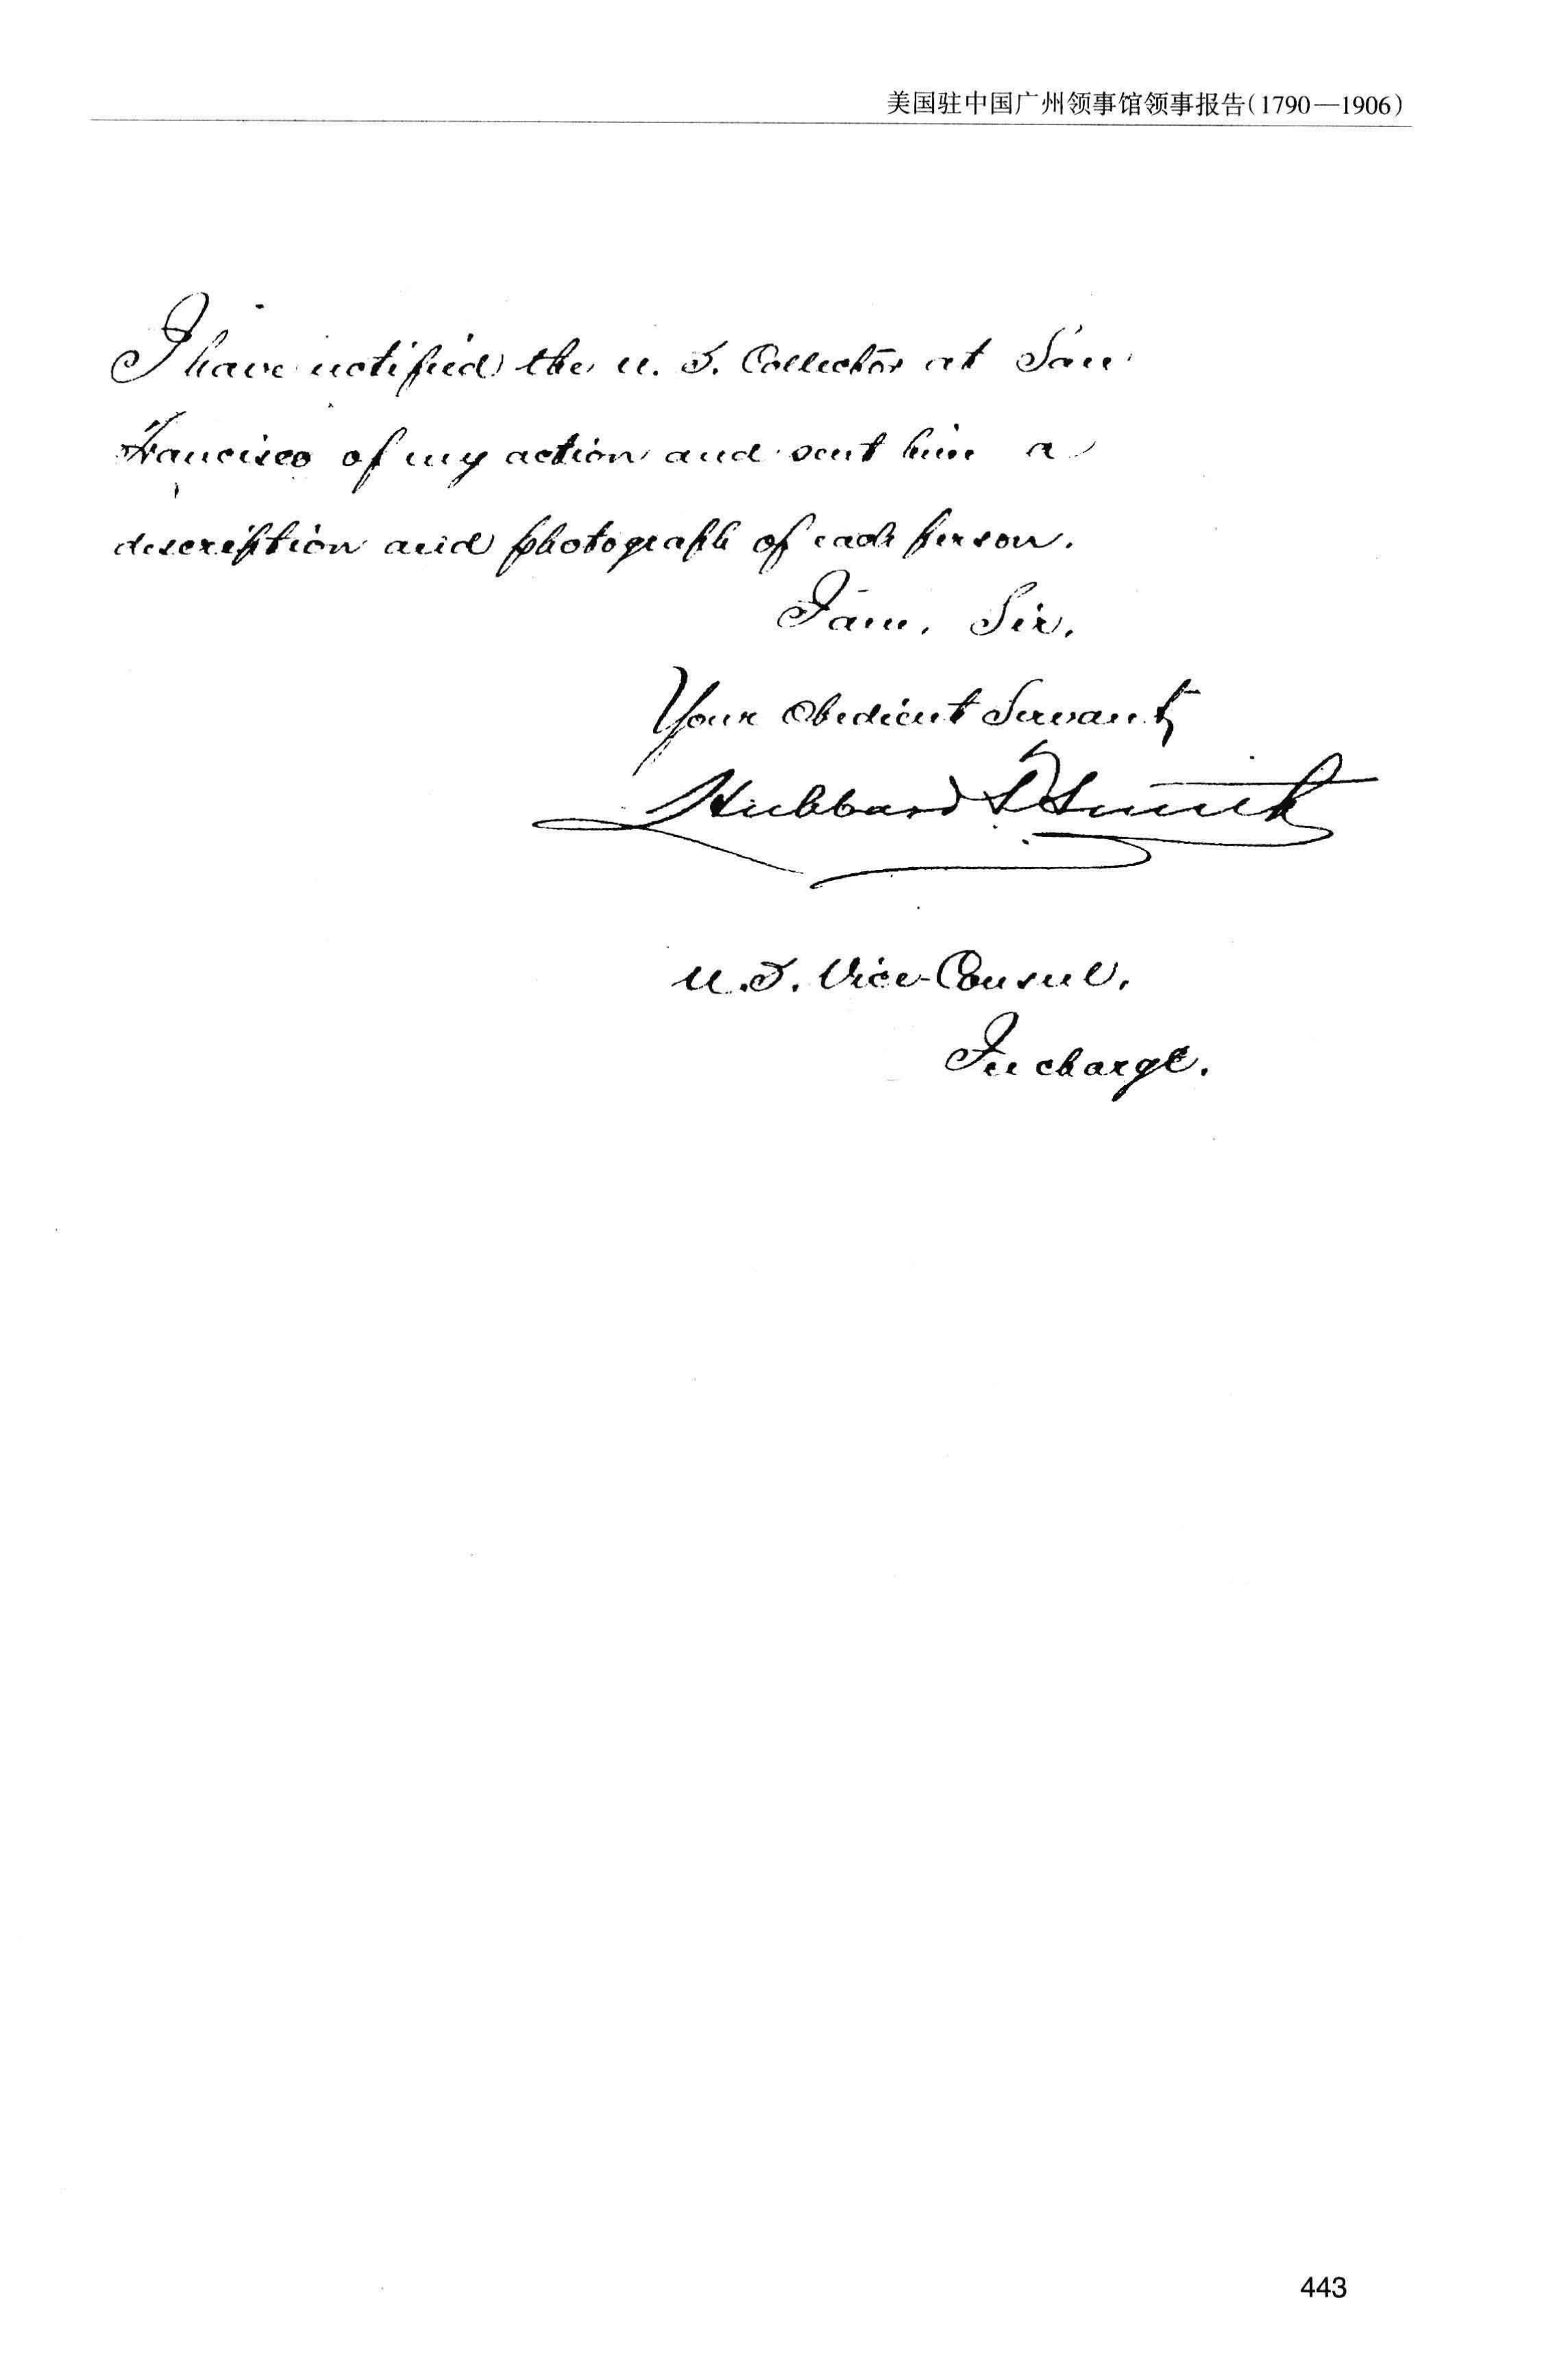 美国驻中国广州领事馆领事报告(1790—1906)
I have notified the U. S. Collector at San
Francisco of my action and sent him a
description and photograph of each person.
I am, Sir,
Your Obedient Servant,
Hubbard T. Smith
U.S. Vice-Consul,
In charge.
443